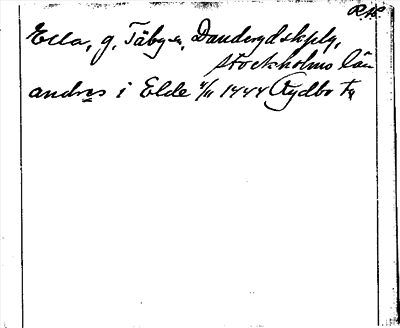 R.A.
Ella, g, Täby sn, Danderyds skplg,
Stockholms län
andres i Elde 4/11 1444 Rydbo